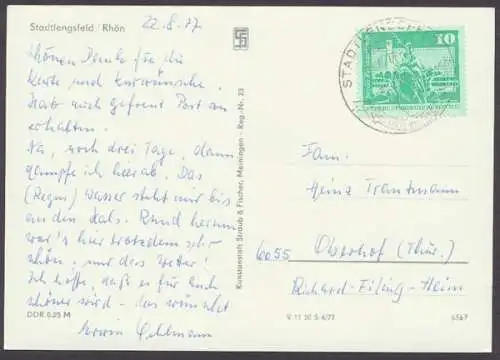 Stadtlengsfeld / Rhön
22.8.77
Schönen Danke für die
Karte und Kurwünsche.
Hab mich gefreut Post zu
erhalten.
Na, noch drei Tage, dann
dampfe ich hier ab. Das
(Regen) Wasser steht mir bis
an den Hals. Rund herum
war's hier trotzdem sehr
schön, nur das Wetter!
Ich hoffe, daß es für Euch
schöner wird - das wünscht
Erwin
DDR 0,25 M
Kunstanstalt Straub & Fischer, Meiningen - Reg.-Nr. 23
STADTLENGSFELD
10
Fam.
Heinz Trautmann
6055 Oberhof (Thür.)
Richard-Eiling-Heim
V 11 50 S 4/77
6567